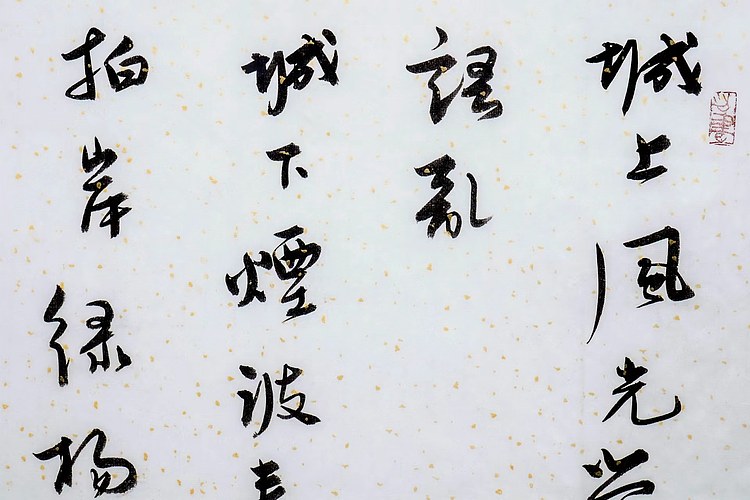 城上風光
語亂
城下煙波
拍岸綠楊